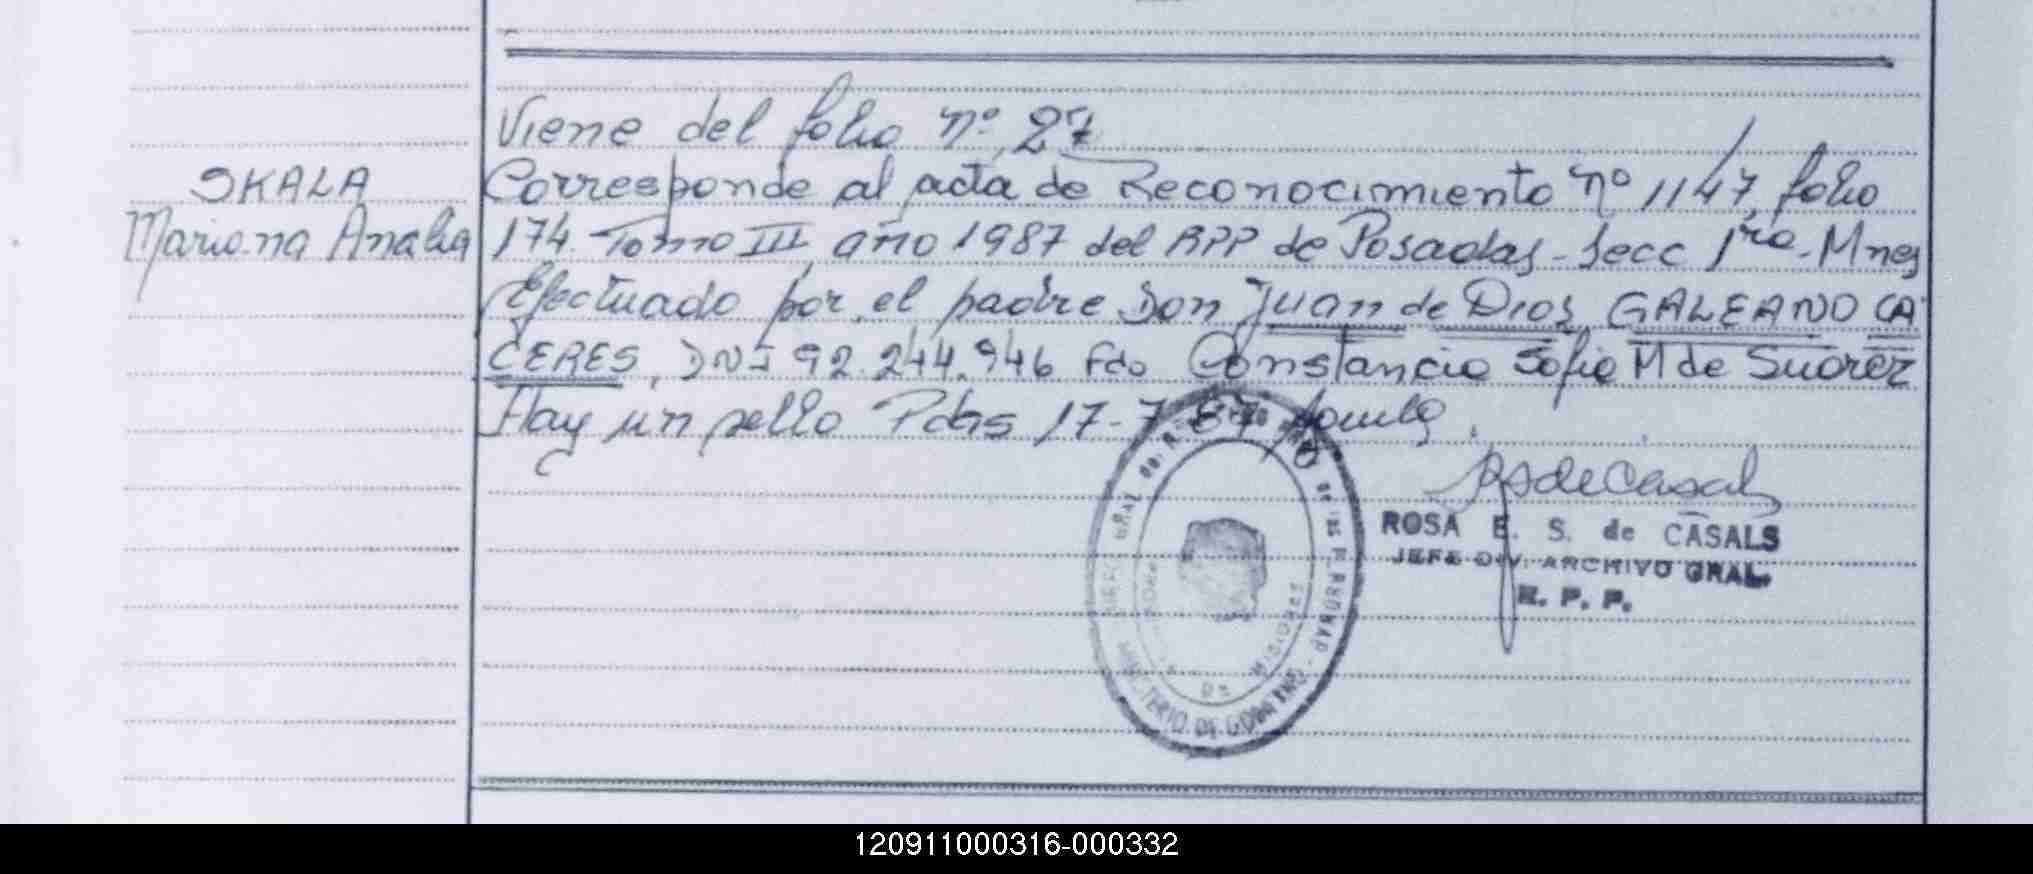 Viene del folio nº 27
SKALA
Mariana Analia
Corresponde al acta de Reconocimiento nº 1147, folio
174. Tomo III, año 1987 del RPP de Posadas - Secc 1ra. Mnes
Efectuado por el padre Don Juan de Dios GALEANO CA
CERES, DNI 92.244.946 Fdo Constancia Sofia M de Suarez
Hay un sello Pdas 17-7-87
RSdeCasals
ROSA E. S. de CASALS
JEFE DIV. ARCHIVO GRAL.
R. P. P.
MINISTERIO DE GOBIERNO
DE MISIONES
120911000316-000332